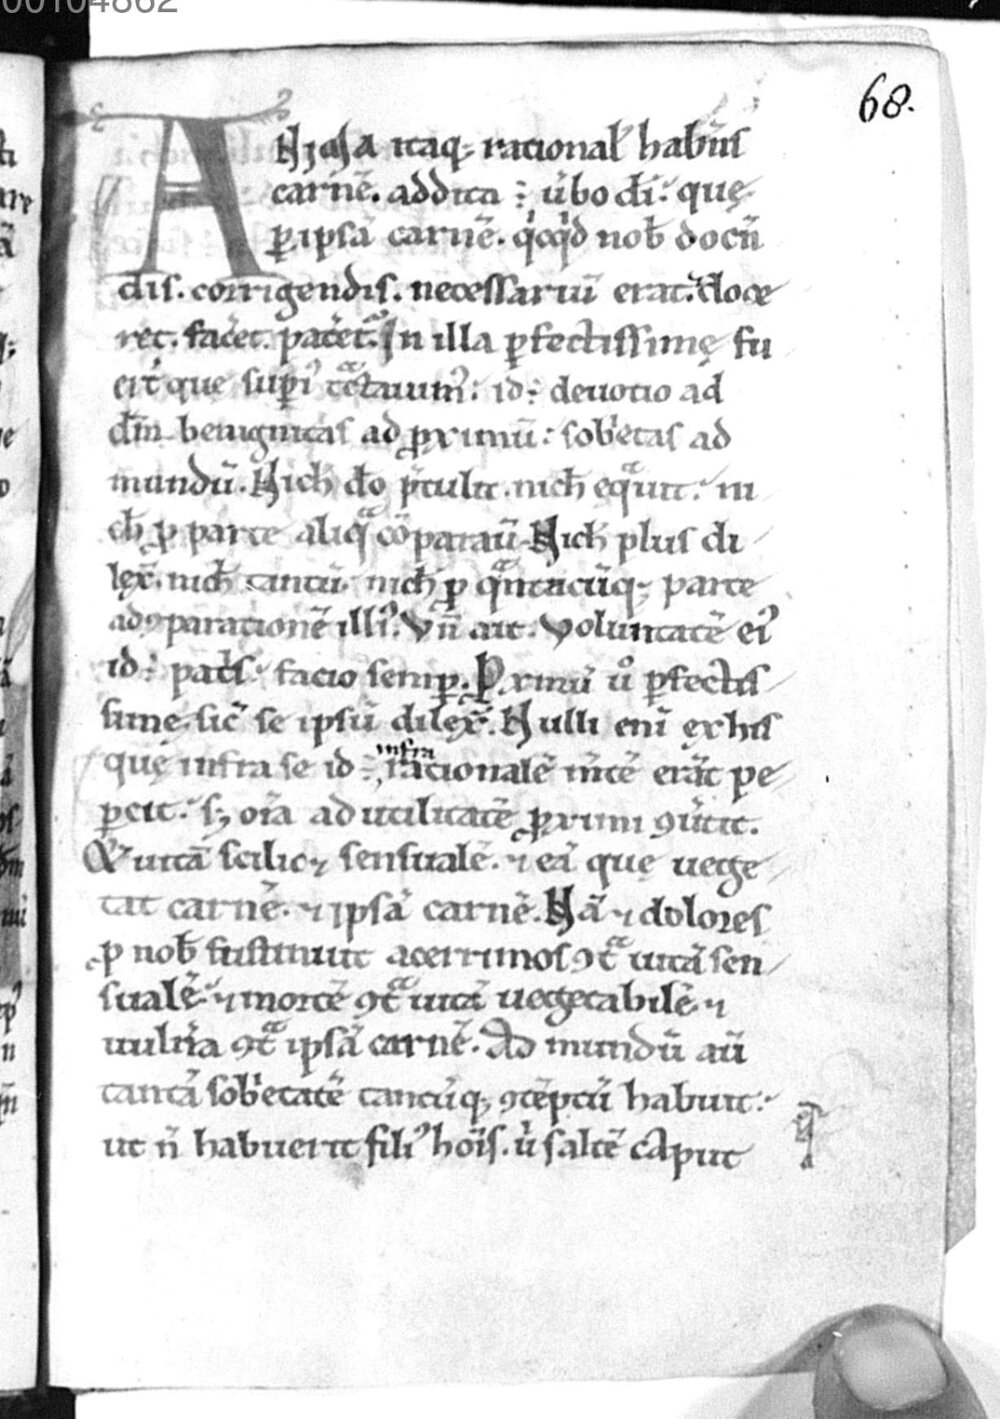 00104862
68.
ANIMA itaq; racional' habūs
carnē. addita ÷ ūbo dī: quę
p ipsā carnē. qicqid nob docū
dis. corrigendis. necessariū erat: doce
ret. facet. patet. In illa pfectissimę fu
erūt que supi tctauim': id÷ deuotio ad
dm̄ benignitas ad pximū: sobetas ad
mundū. Nich do ptulit. nich eqauit: ni
ch p parte aliq cōparauit. Nich plus di
lex̄. nich tantū. nich p qntacūq; parte
ad 9parationē illi'. Vn̄ ait. Voluntatē ei'
id÷ patis: facio semp. Pximū uo pfectis
sime. sic se ipsū dilex̄. Nulli eni ex his
quę infra se id÷ infra racionalē mtē erāt pe
pcit: s; oīa ad utilitatē pximi 9utit.
uitā scilic; sensualē. ⁊ eā quę uege
tat carnē. ⁊ ipsā carnē. Nā ⁊ dolores
p nob sustinuit acerrimos 9t uitā sen
sualē: ⁊ mortē 9t uitā uegetabilē. ⁊
uulnīa 9t ipsā carnē. Ad mundū aū
tantā sobetatē tantūq; 9tēptū habuit:
ut n̄ habuerit fili' hōis. ū saltē caput